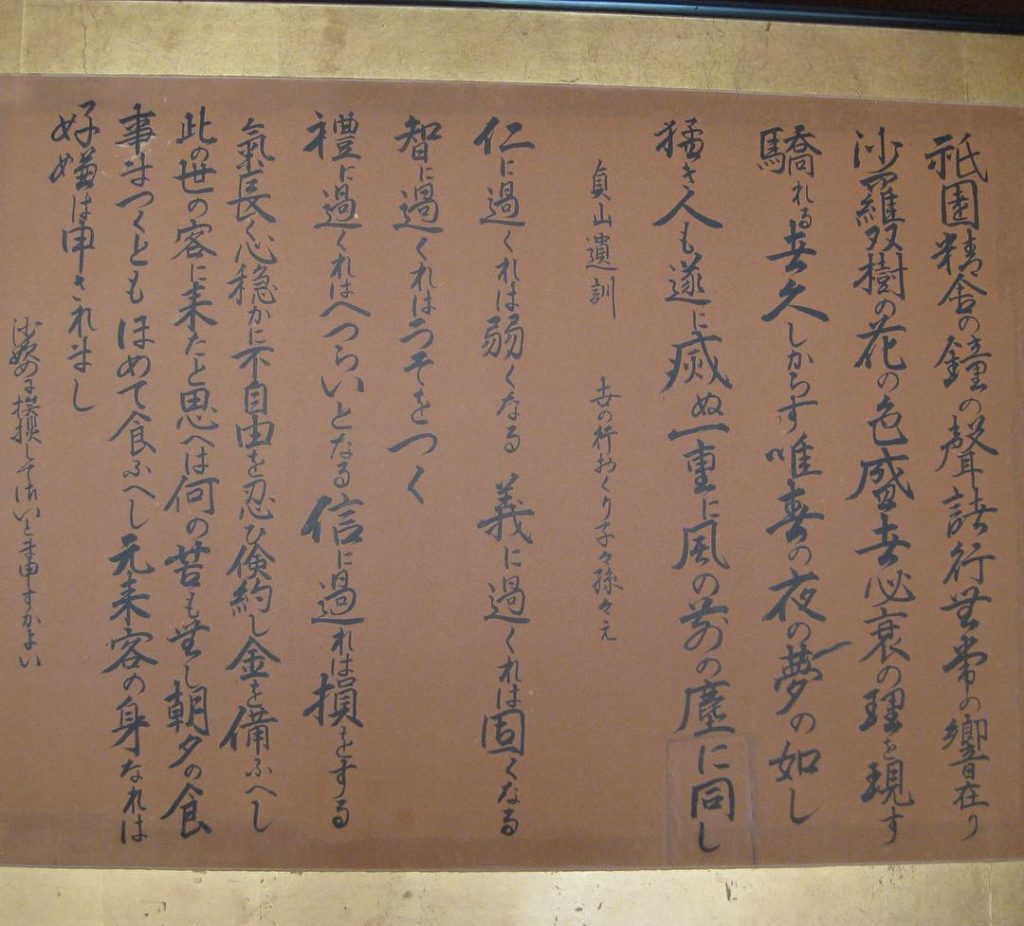 祇園精舎の鐘の聲諸行無常の響在り
沙羅双樹の花の色盛者必衰の理を現す
驕れる者久しからす唯春の夜の夢の如し
猛き人も遂に滅ぬ一重に風の前の塵に同し
貞山遺訓
仁に過くれは弱くなる 義に過くれは固くなる
智に過くれはうそをつく
禮に過くれはへつらいとなる 信に過れは損をする
氣長く心穏かに不自由を忍ひ倹約し金を備ふへし
此の世の客に来たと思へは何の苦も無し朝夕の食
事まつくともほめて食ふへし 元来客の身なれは
好嫌は申されまし